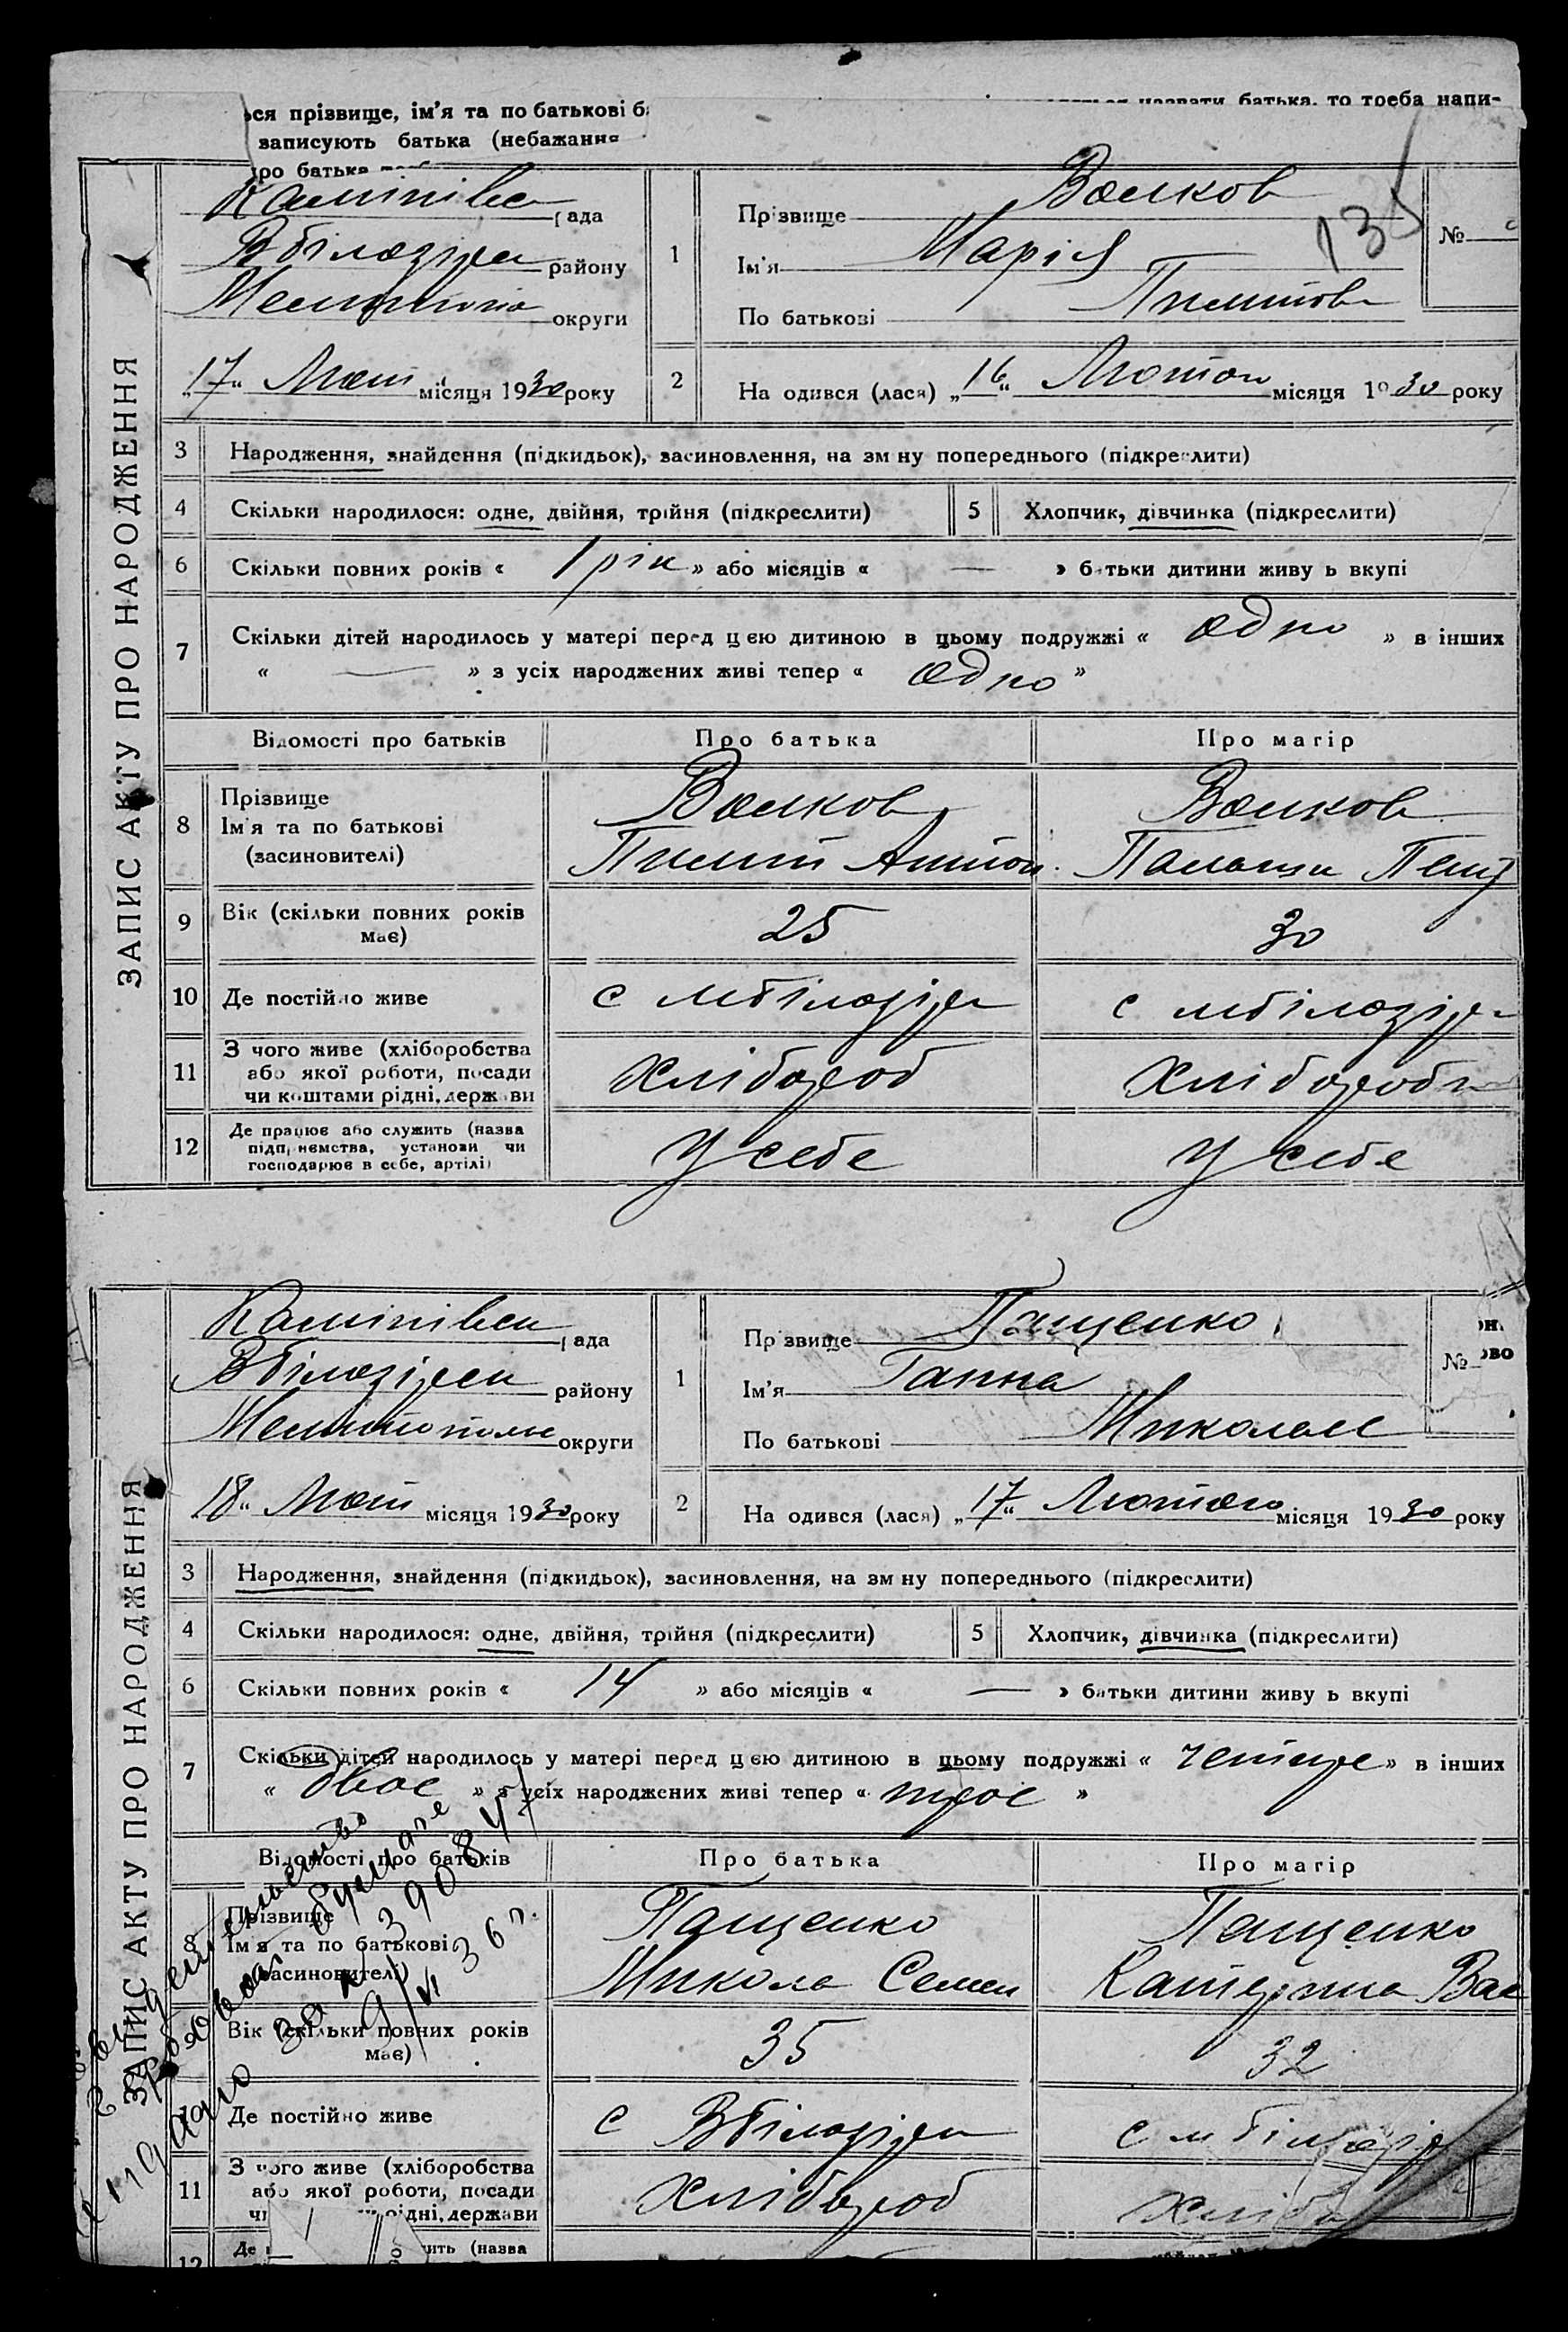 ься прізвище, ім'я та по батькові
назвати батька, то треба напи-
записують батька (небажання
про батька
рада
Вбілозірсь району
округи
„17“ Лют місяця 1930 року
1
Прізвище Волков
Ім'я Марія
По батькові Пилипов
135
№
2
На одився (лася) „16“ Лютого місяця 1930 року
ЗАПИС АКТУ ПРО НАРОДЖЕННЯ
3 Народження, знайдення (підкидьок), засиновлення, на зм ну попереднього (підкреслити)
4 Скільки народилося: одне, двійня, трійня (підкреслити) 5 Хлопчик, дівчинка (підкреслити)
6 Скільки повних років « 1 рік » або місяців « — » батьки дитини живу ь вкупі
7 Скільки дітей народилось у матері перед цією дитиною в цьому подружжі « одно » в інших
« — » з усіх народжених живі тепер « одно »
Відомості про батьків Про батька Про матір
8 Прізвище
Ім'я та по батькові
(засиновителі)
Волков
Пилип Антон.
Волков
9 Вік (скільки повних років
має)
25 30
10 Де постійно живе с мбілозірк с мбілозірк
11 З чого живе (хліборобства
або якої роботи, посади
чи коштами рідні, держави
Хлібороб Хлібороб
12 Де працює або служить (назва
підприємства, установи чи
господарює в себе, артілі)
У себе У себе
рада
Вбілозірськ району
Мелитополь округи
„18“ Лют місяця 1930 року
1
Пр звище Пащенко
Ім'я Ганна
По батькові Микола
№
2
На одився (лася) „17“ Лютого місяця 1930 року
ЗАПИС АКТУ ПРО НАРОДЖЕННЯ
3 Народження, знайдення (підкидьок), засиновлення, на зм ну попереднього (підкреслити)
4 Скільки народилося: одне, двійня, трійня (підкреслити) 5 Хлопчик, дівчинка (підкреслити)
6 Скільки повних років « 14 » або місяців « — » батьки дитини живу ь вкупі
7 Скільки дітей народилось у матері перед цією дитиною в цьому подружжі « четире » в інших
« двое » з усіх народжених живі тепер « трое »
Відомості про батьків Про батька Про матір
8 Прізвище
Ім'я та по батькові
(засиновителі)
Пащенко
Микола Семен
Пащенко
Катерина Вас
9 Вік (скільки повних років
має)
35 32
10 Де постійно живе с Вбілозірк
11 З чого живе (хліборобства
або якої роботи, посади
рідні, держави
Хлібороб Хлібо
12
(назва